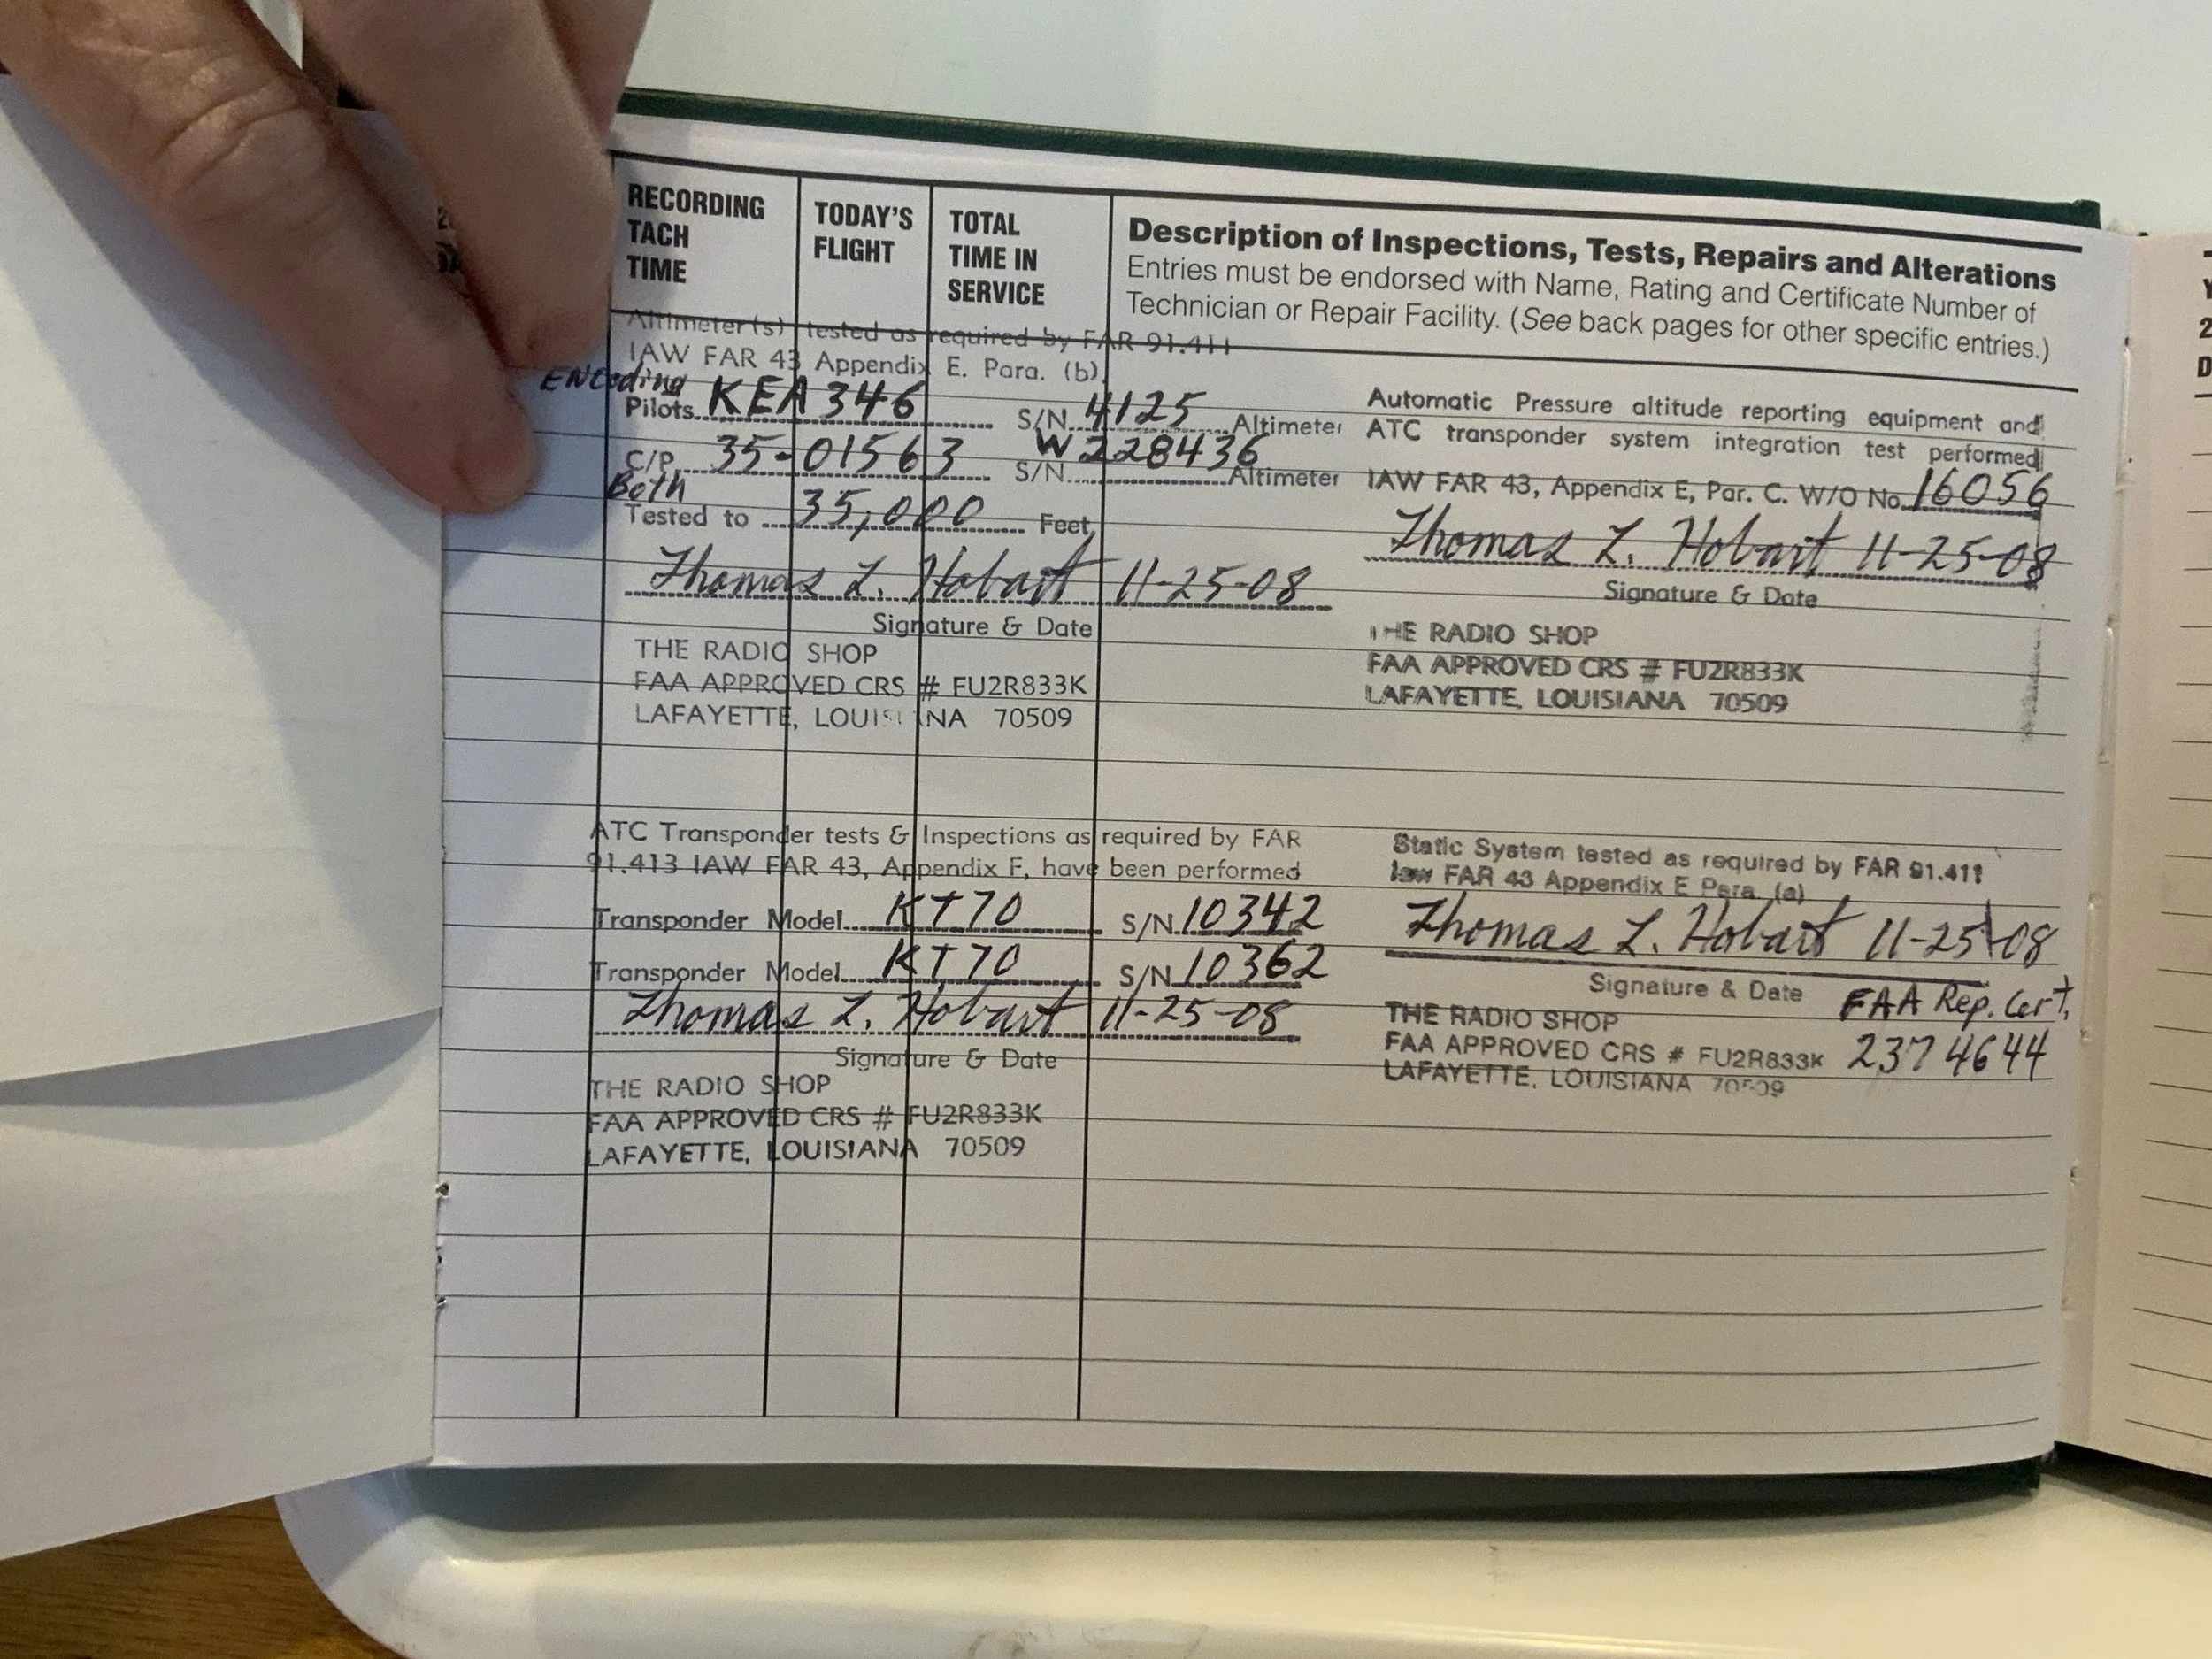 RECORDING
TACH
TIME
TODAY'S
FLIGHT
TOTAL
TIME IN
SERVICE
Description of Inspections, Tests, Repairs and Alterations
Entries must be endorsed with Name, Rating and Certificate Number of
Technician or Repair Facility. (See back pages for other specific entries.)
Altimeter(s) tested as required by FAR 91.411
IAW FAR 43 Appendix E. Para. (b)
ENCoding
Pilots KEA 346 S/N 4125 Altimeter
C/P 35-01563 S/N W228436 Altimeter
Both
Tested to 35,000 Feet
Thomas L. Hobart 11-25-08
Signature & Date
THE RADIO SHOP
FAA APPROVED CRS # FU2R833K
LAFAYETTE, LOUISIANA 70509
Automatic Pressure altitude reporting equipment and
ATC transponder system integration test performed
IAW FAR 43, Appendix E, Par. C. W/O No. 16056
Thomas L. Hobart 11-25-08
Signature & Date
THE RADIO SHOP
FAA APPROVED CRS # FU2R833K
LAFAYETTE, LOUISIANA 70509
ATC Transponder tests & Inspections as required by FAR
91.413 IAW FAR 43, Appendix F, have been performed
Transponder Model KT70 S/N 10342
Transponder Model KT70 S/N 10362
Thomas L. Hobart 11-25-08
Signature & Date
THE RADIO SHOP
FAA APPROVED CRS # FU2R833K
LAFAYETTE, LOUISIANA 70509
Static System tested as required by FAR 91.411
Iaw FAR 43 Appendix E Para. (a)
Thomas L. Hobart 11-25-08
Signature & Date FAA Rep. Cert.
THE RADIO SHOP
FAA APPROVED CRS # FU2R833K 2374644
LAFAYETTE, LOUISIANA 70509